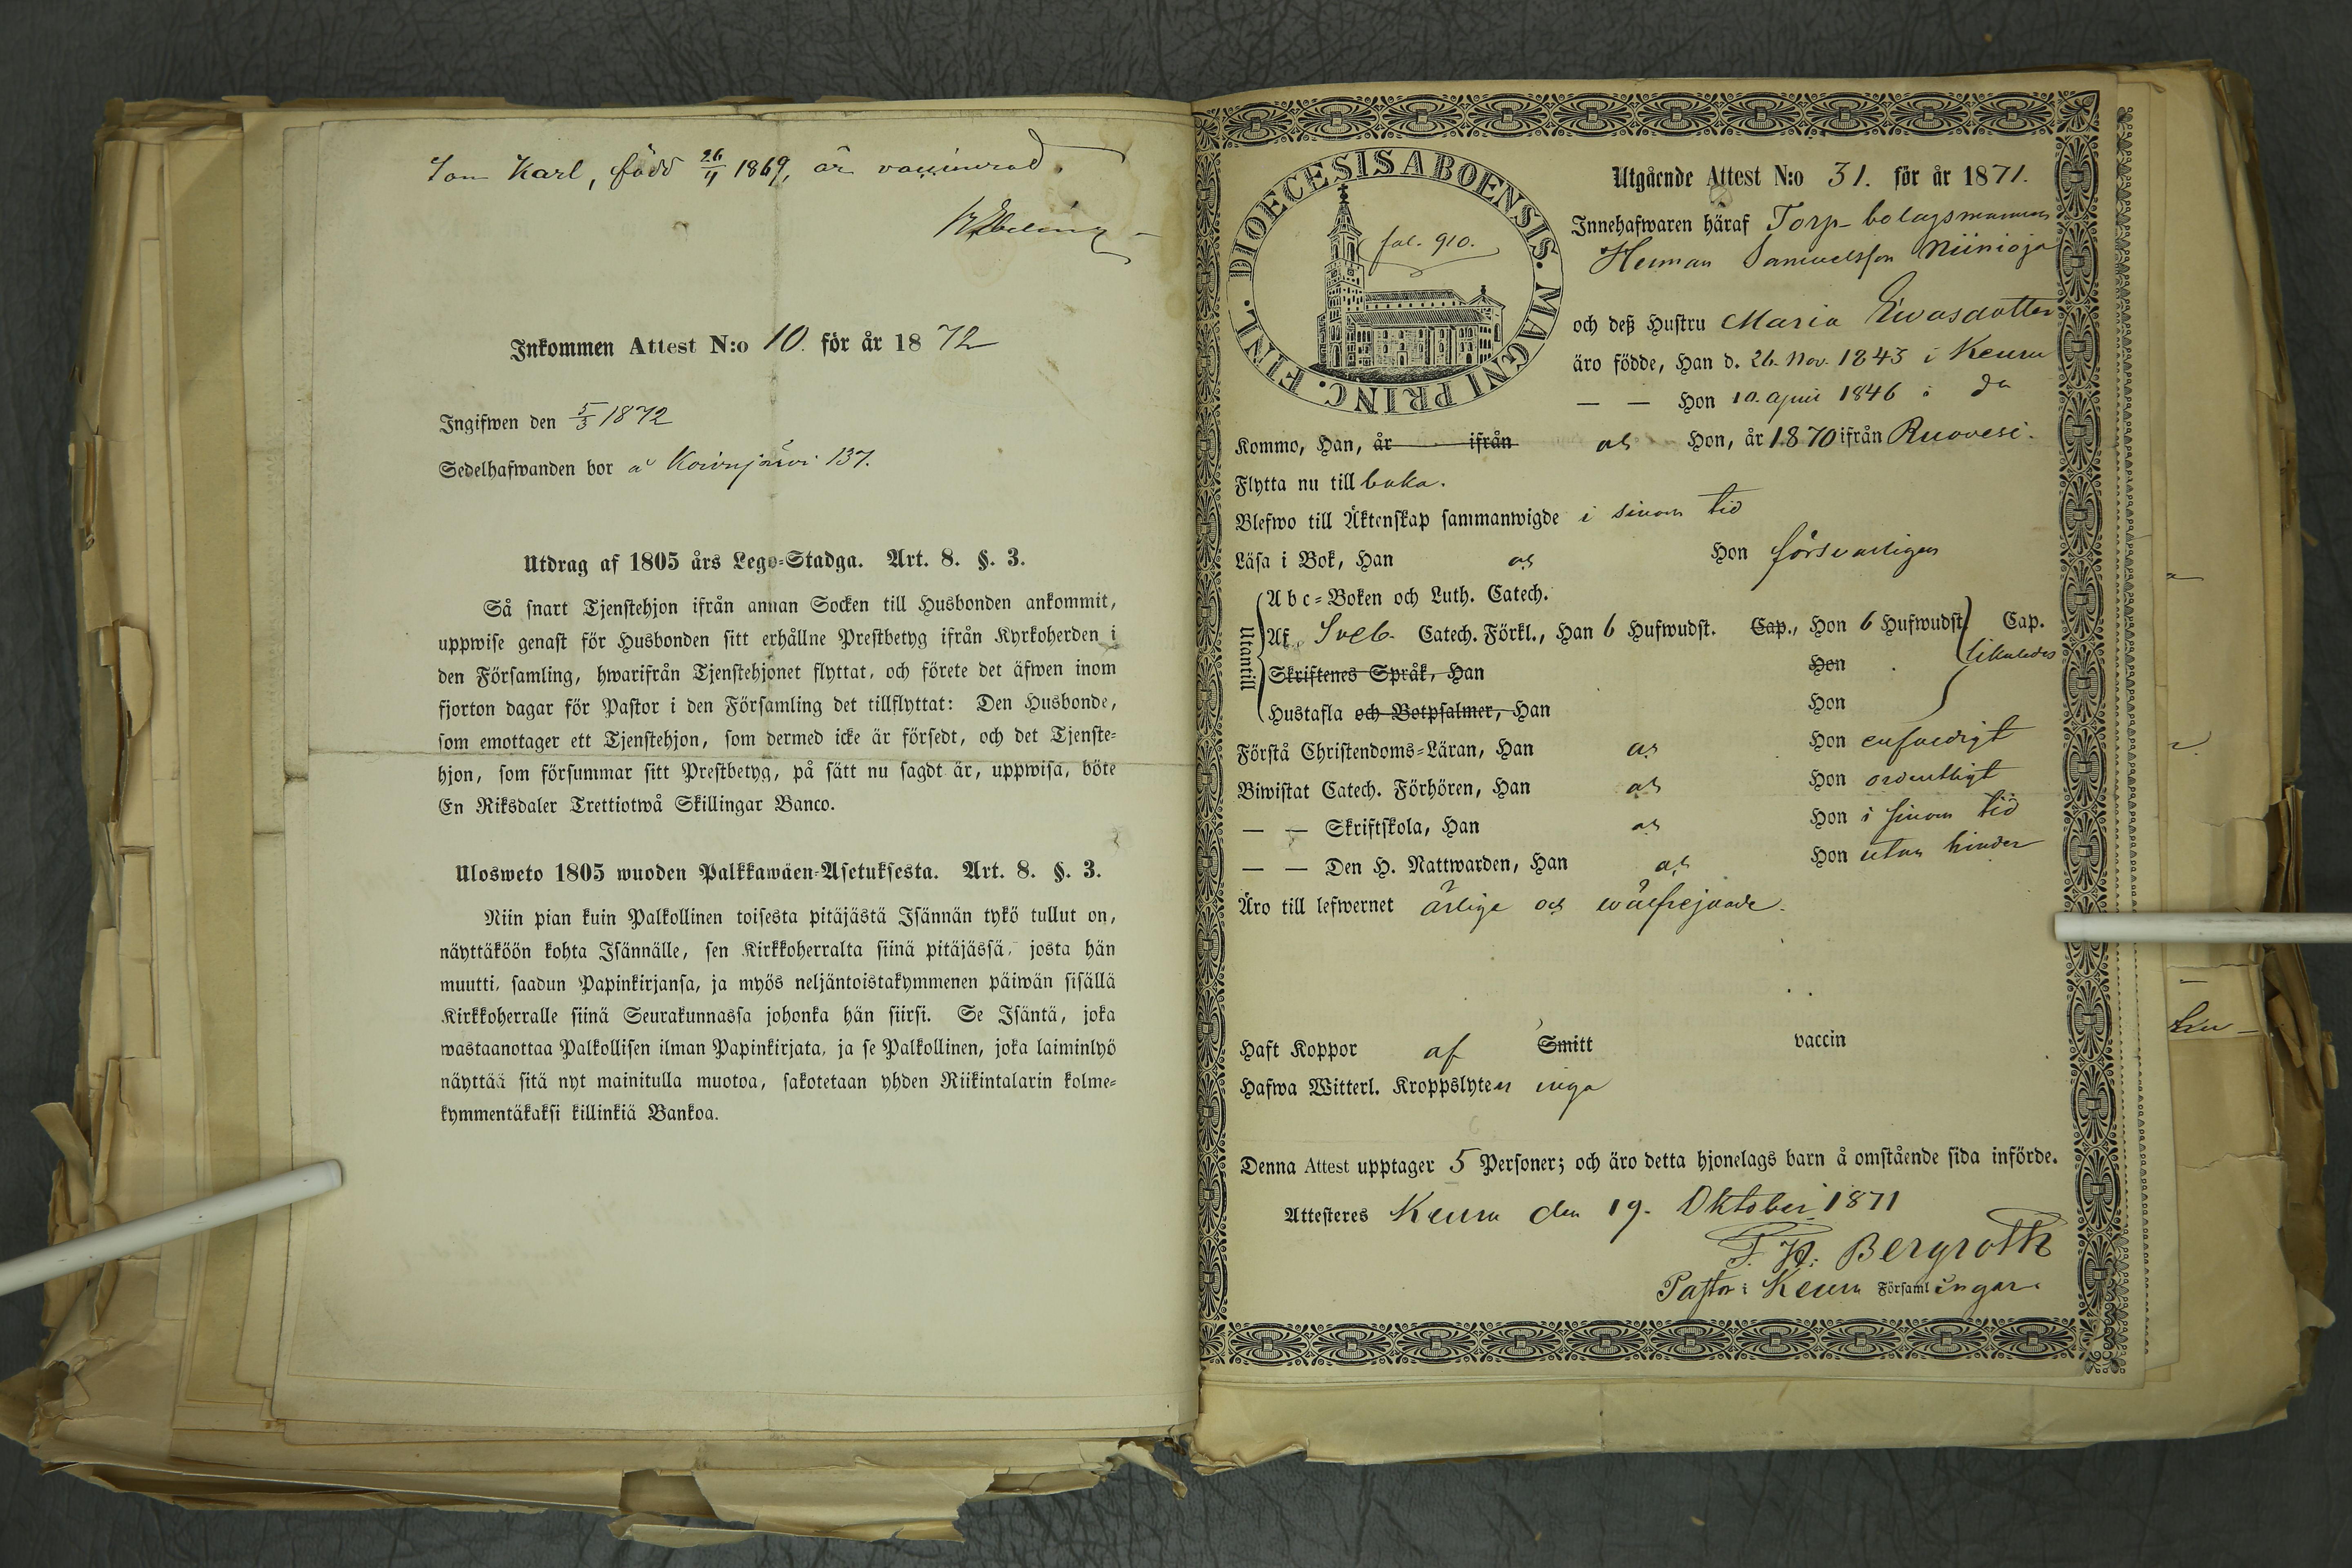 Son Karl, född 26/11 1869, är vaccinerad.
Inkommen Attest N:o 10. för år 1872
Ingifwen den 5/3 1872
Sedelhafwanden bor å Koivujärvi 137.
Utdrag af 1805 års Lego-Stadga. Art. 8. §. 3.
Så snart Tjenstehjon ifrån annan Socken till Husbonden ankommit,
uppwise genast för Husbonden sitt erhållne Prestbetyg ifrån Kyrkoherden i
den Församling, hwarifrån Tjenstehjonet flyttat, och förete det äfwen inom
fjorton dagar för Pastor i den Församling det tillflyttat: Den Husbonde,
som emottager ett Tjenstehjon, som dermed icke är försedt, och det Tjenste-
hjon, som försummar sitt Prestbetyg, på sätt nu sagdt är, uppwisa, böte
En Riksdaler Trettiotwå Skillingar Banco.
Ulosweto 1805 wuoden Palkkawäen-Asetuksesta. Art. 8. §. 3.
Niin pian kuin Palkollinen toisesta pitäjästä Isännän tykö tullut on,
näyttäköön kohta Isännälle, sen Kirkkoherralta siinä pitäjässä, josta hän
muutti, saadun Papinkirjansa, ja myös neljäntoistakymmenen päiwän sisällä
Kirkkoherralle siinä Seurakunnassa johonka hän siirsi. Se Isäntä, joka
wastaanottaa Palkollisen ilman Papinkirjata, ja se Palkollinen, joka laiminlyö
näyttää sitä nyt mainitulla muotoa, sakotetaan yhden Riikintalarin kolme-
kymmentäkaksi killinkiä Bankoa.
DIOECESIS ABOENSIS. MAGNI PRINC. FINL.
fol. 910.
Utgående Attest N:o 31. för år 1871.
Innehafwaren häraf Torp-bolagsmannen
Herman Samuelsson Niinioja
och deß Hustru Maria Eivasdotter
äro födde, Han d. 26. Nov. 1843 i Keuru
— — Hon 10. April 1846 i do
Kommo, Han, år ifrån och Hon, år 1870 ifrån Ruovesi.
Flytta nu till baka.
Blefwo till Äktenskap sammanwigde i sinom tid
Läsa i Bok, Han och Hon försvarligen
Utantill
Abc-Boken och Luth. Catech.
Af Sveb. Catech. Förkl., Han 6 Hufwudst. Cap., Hon 6 Hufwudst. Cap.
Skriftenes Språk, Han Hon likaledes
Hustafla och Botpsalmer, Han Hon
Förstå Christendoms-Läran, Han och Hon enfaldigt
Biwistat Catech. Förhören, Han och Hon ordentligt
— — Skriftskola, Han och Hon i sinom tid
— — Den H. Nattwarden, Han och Hon utan hinder
Äro till lefwernet ärlige och wälfrejdade.
Haft Koppor af Smitt vaccin
Hafwa Witterl. Kroppslyten inga
Denna Attest upptager 5 Personer; och äro detta hjonelags barn å omstående sida införde.
Attesteres Keuru den 19. Oktober 1871
F. H. Bergroth
Pastor i Keuru Församlingar.